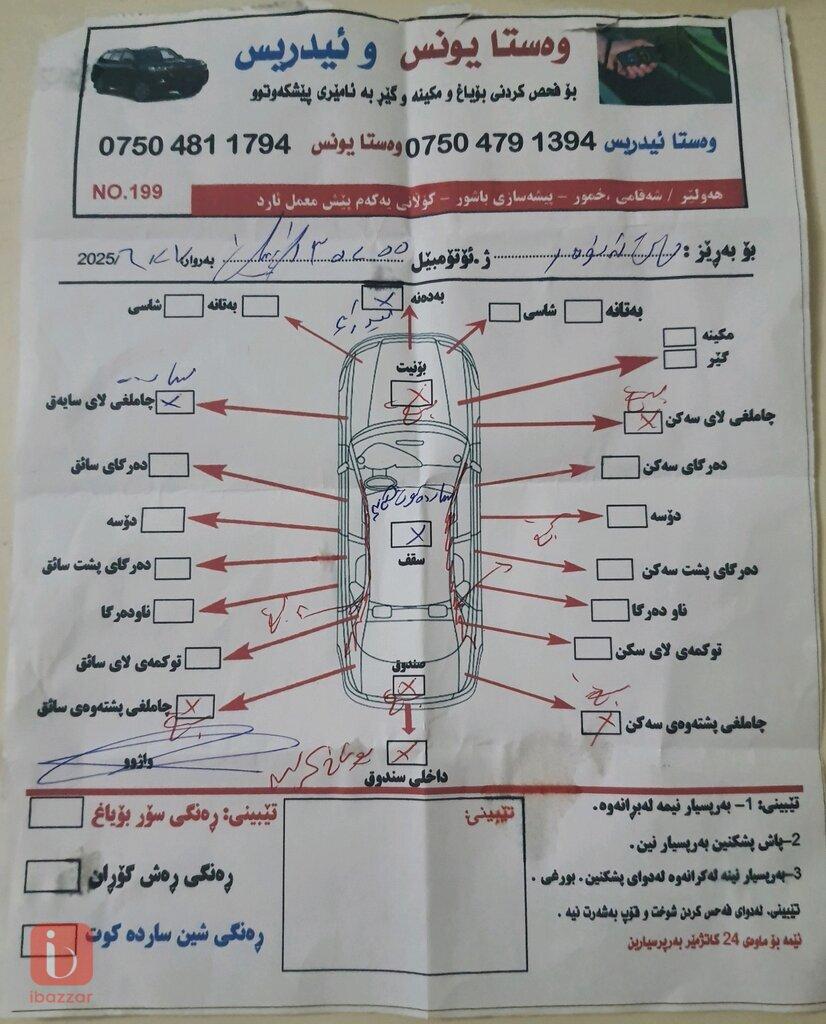 وەستا یونس و ئیدریس
بۆ فحص کردنی بۆیاغ و مکینە و گێر بە ئامێری پێشکەوتوو
وەستا ئیدریس 0750 479 1394 وەستا یونس 0750 481 1794
هەولێر / شەقامی ،خمور - پیشەسازی باشور - کۆڵانی یەکەم پێش معمل ئارد
NO.199
بۆ بەرێز : ژ.ئۆتۆمبێل بەروار 2025/
بەتانە شاسی بەدەنە بەتانە شاسی
مکینە
گێر
بۆنێت
چاملغی لای سەکن چاملغی لای سایەق
دەرگای سەکن دەرگای سائق
دۆسە دۆسە
سقف
دەرگای پشت سەکن دەرگای پشت سائق
ناو دەرگا ناودەرگا
توکمەی لای سکن توکمەی لای سائق
صندوق
چاملغی پشتەوەی سەکن چاملغی پشتەوەی سائق
داخلی سندوق
واژوو
تێبینی: 1- بەرپسیار نیمە لەبرانەوە.
2-پاش پشکنین بەرپسیار نین.
3-بەرپسیار نینە لەکرانەوە لەدوای پشکنین. بورغی.
تێبینی. لەدوای فەحس کردن شوخت و قۆپ بەشەرت نیە.
ئێمە بۆ ماوەی 24 کاتژمێر بەرپرسیارین
تێبینی:
تێبینی: ڕەنگی سۆر بۆیاغ
ڕەنگی ڕەش گۆڕان
ڕەنگی شین ساردە کوت
ibazzar